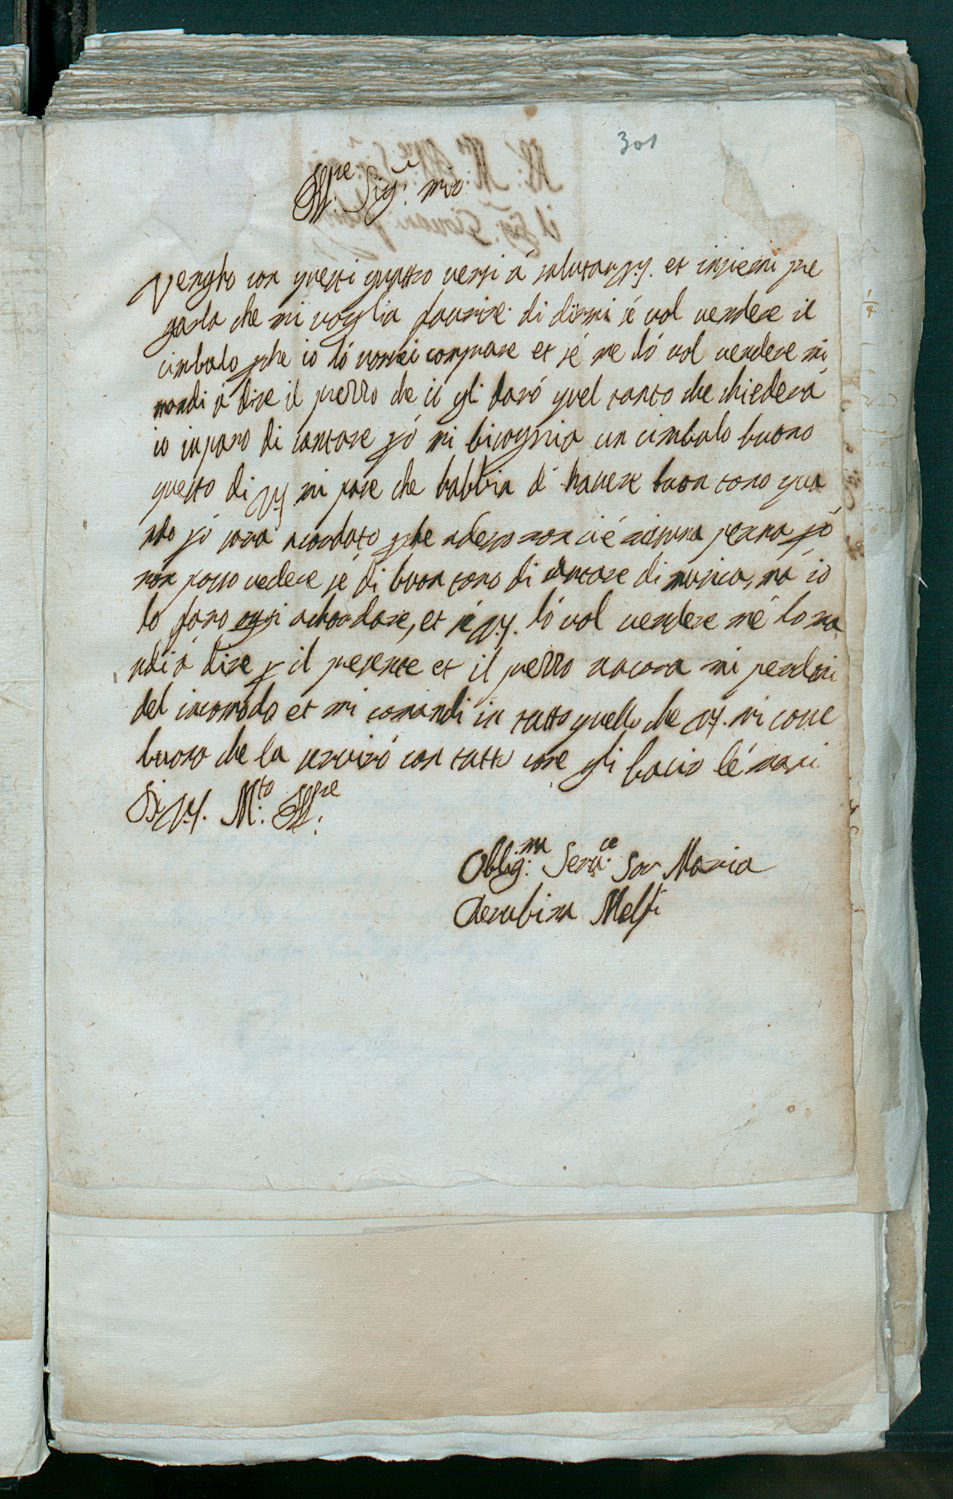 301
Ill.re Sig.r mio
Vengho con questi quatro versi á salutar VS. et insieme pre
garla che mi voglia favrire di dirmi sé vol vendere il
cimbalo perche io ló vorrei comprare et sé me ló vol vendere mi
mandi á dire il prezzo che io gli daró quel tanto che chiederá
io inparo di cantare peró mi bisognia un cimbalo buono
questo di VS mi pare che habbia á havere buon tono qua
ndo peró sará acordato perche adesso non ci é nisuna penna peró
non posso vedere sé di buon tono di cantare di musica, má io
lo faró acordare, et sé VS. ló vol vendere mé lo ma
ndi á dire per il presente et il prezzo ancora mi perdoni
del incomodo et mi comandi in tutto quello che VS. mi conc
buono che la serviró con tutto core gli bacio lé mani
Di VS. M.to Ill.re
Oblig.ma Serva.ce Sor Maria
Cherubina Melfi